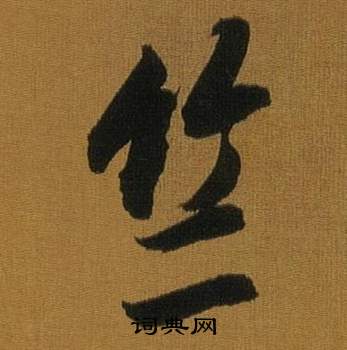 竺
词典网